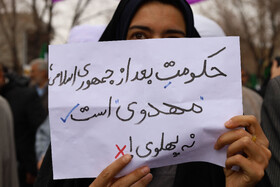 حکومتِ بعد از جمهوری اسلامی،
"مهدوی" است ✓
نه پهلوی!! ×